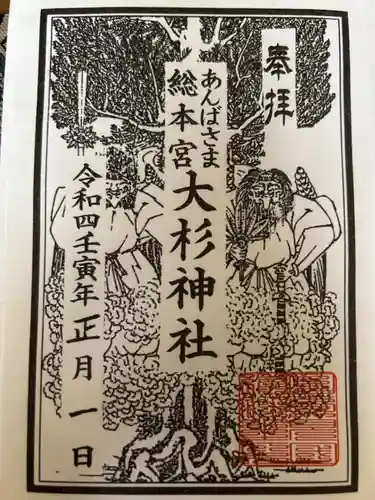 奉拝
あんばさま
総本宮
大杉神社
令和四壬寅年
正月一日